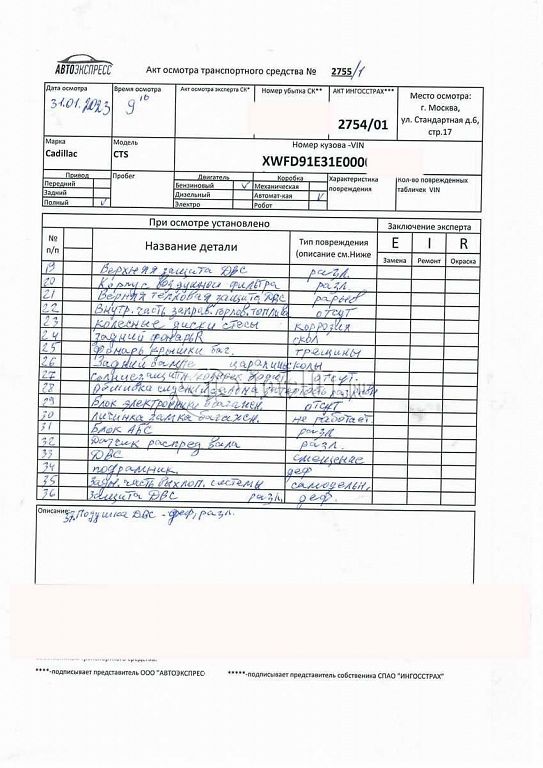 АВТОЭКСПРЕСС
Акт осмотра транспортного средства № 2755/1
Дата осмотра
31.01.2023
Время осмотра
9 10
Акт осмотра эксперта СК*
Номер убытка СК**
АКТ ИНГОССТРАХ***
2754/01
Место осмотра:
г. Москва,
ул. Стандартная д.6,
стр.17
Марка
Cadillac
Модель
CTS
Номер кузова -VIN
XWFD91E31E000
Привод
Передний
Задний
Полный √
Пробег
Двигатель
Бензиновый √
Дизельный
Электро
Коробка
Механическая
Автомат-кая √
Робот
Характеристика
повреждения
Кол-во поврежденных
табличек VIN
При осмотре установлено
Заключение эксперта
№
п/п
Название детали
Тип повреждения
(описание см.Ниже
E I R
Замена Ремонт Окраска
19 Верхняя защита ДВС разл.
20 Корпус воздушный фильтра разл.
21 Верхняя тепловая защита ДВС разрыв
22 Внутр. часть заправ. горлов. топлива отсут
23 колесные диски стесы коррозия
24 Задний фонарь R скол
25 Фонарь крышки баг. трещины
26 Задний бампер царапины сколы
27 Солнцезащитн. козырек отсут.
28 Обшивка
29 Блок электроники багажн. отсут
30 личинка замка багажн. не работает.
31 Блок АБС разл
32 Датчик распред вала разл.
33 ДВС смещение
34 подрамник деф
35 Задн. часть выхлоп. системы самодельн,
36 защита ДВС разл. деф.
Описание:
37. Подушка ДВС - деф, разл.
****-подписывает представитель ООО "АВТОЭКСПРЕС
*****-подписывает представитель собственика СПАО "ИНГОССТРАХ"